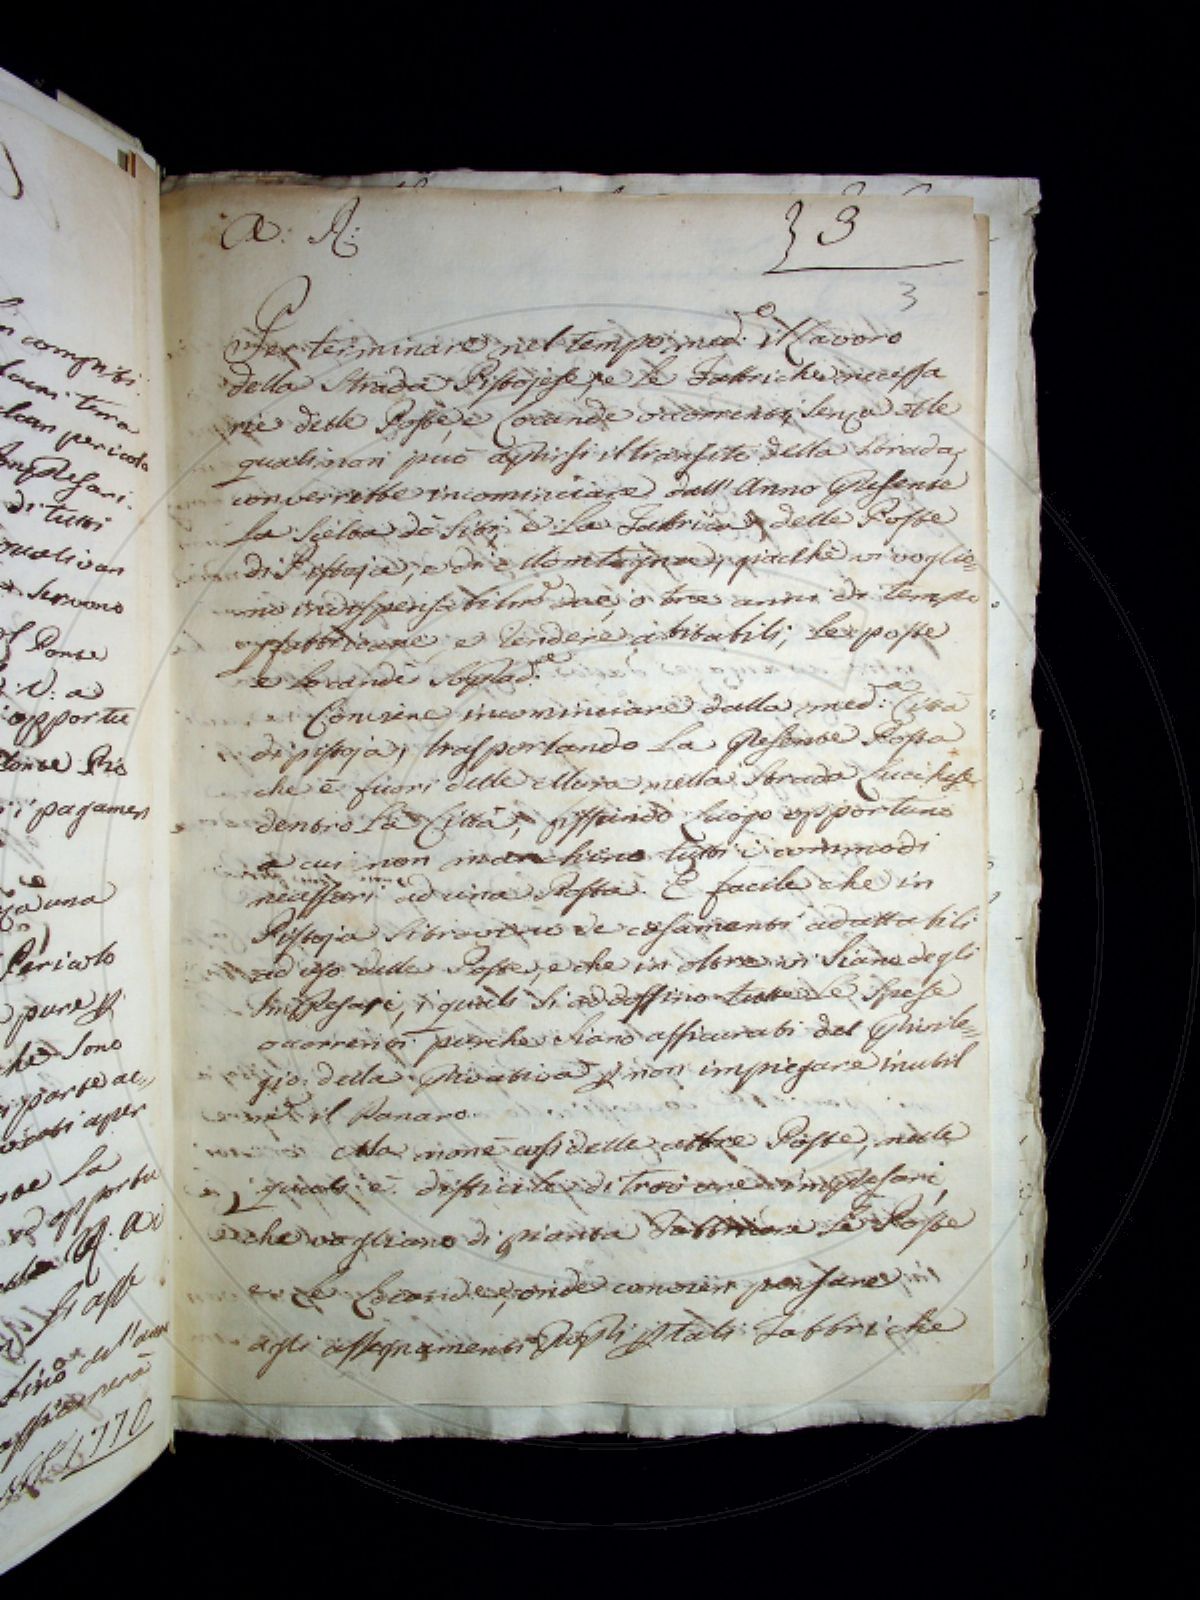 A: R:
3
3
Per terminare nel tempo med.o il Lavoro
della Strada Pistojese, e le Fabbriche necessa
rie delle Poste, e Locande occorrenti, senza delle
quali non può aprirsi il transito della Strada,
converrebbe incominciare dall' Anno presente
la scielta de siti, e la Fabbrica delle Poste
di Pistoja, e di Montagna, giacchè vi voglio=
no indispensabilm.e due, o tre anni di tempo
p fabbricare, e rendere abitabili, le poste
e Locande Soprad.e
Conviene incominciare dalla med.a Città
di pistoja, trasportando la presente Posta
che è fuori delle Mura, nella Strada Lucchese
dentro la Città, fissando luogo opportuno
a cui non manchino tutti i commodi
necessari ad una Posta. È facile che in
Pistoja si trovino de casamenti adattabili
ad uso delle Poste, e che in oltre vi siano degli
Impresari, i quali si addossino tutte le spese
occorrenti purche siano assicurati del Privile=
gio della Privativa p non impiegare inutil
m.e il Danaro
Ma non è così delle altre Poste, nelle
quali è difficile di trovare impresari,
che vogliano di pianta Fabbricare le Poste
e le Locande, onde convien pensare
agli assegnamenti p tali Fabbriche
in compiti
terra
pericolo
Impresari
di tutti
quali van
servono
Ponte
opportu
i pagamen
una
Pericolo
pure p
che sono
parte ac=
aper
la
opportu
dell' anno
1770